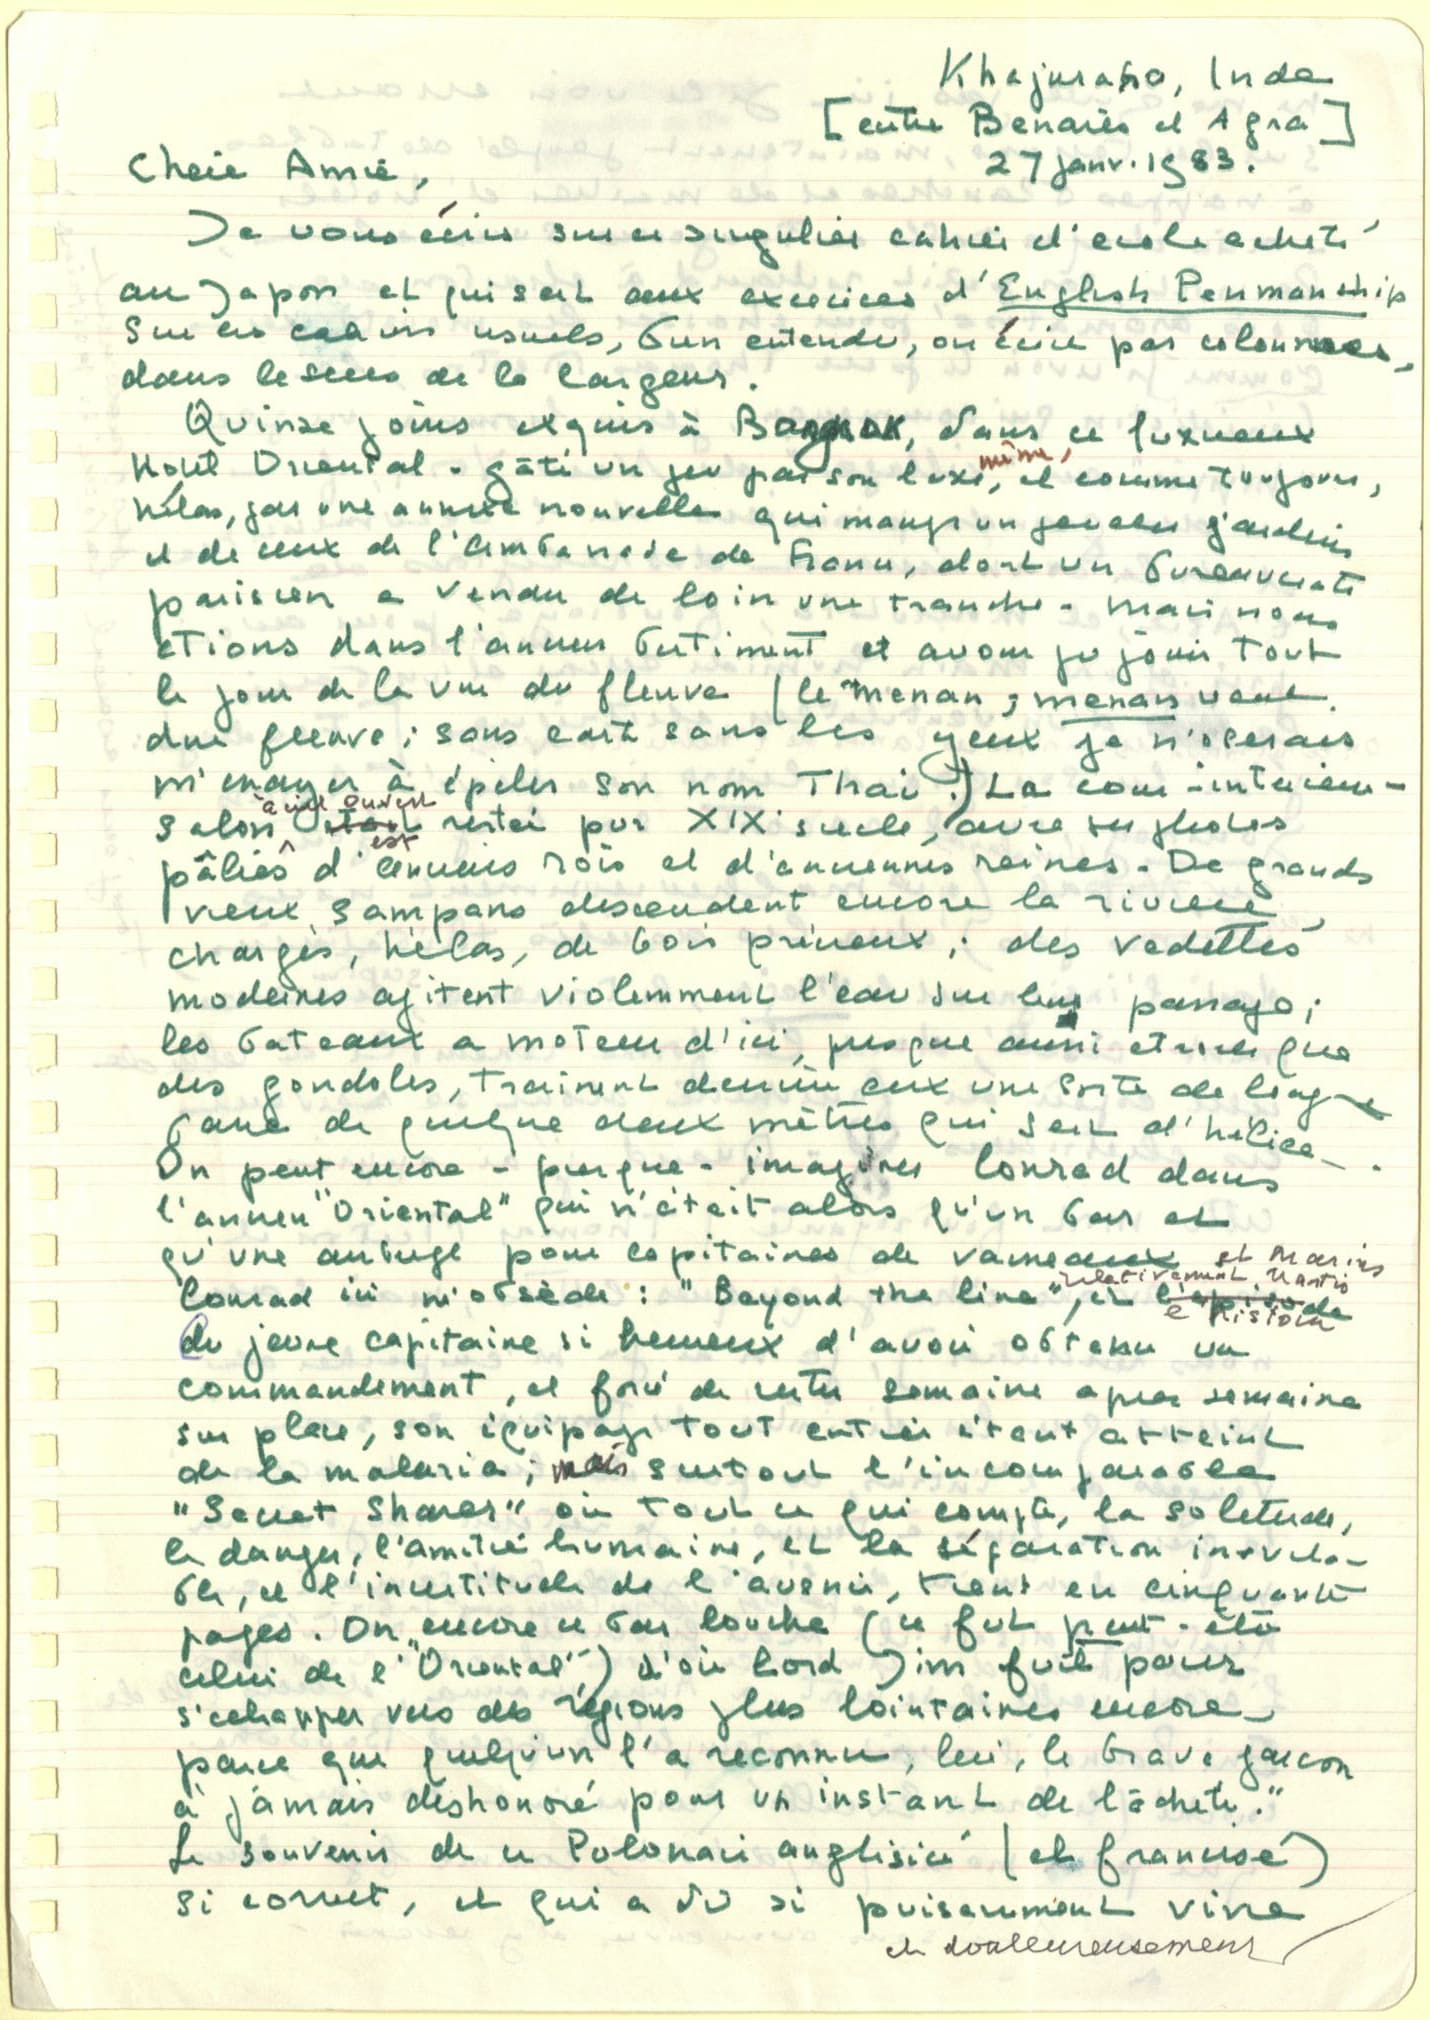 Khajuraho, Inde
[entre Benarès et Agra]
27 janv. 1983.
Chère Amie,
Je vous écris sur ce singulier cahier d'école acheté
au Japon et qui sert aux exercices d'English Penmanship
Sur les cahiers usuels, bien entendu, on écrit par colonnes,
dans le sens de la largeur.
Quinze jours exquis à Bangkok, dans ce luxueux
Hotel Oriental - gâté un peu par son luxe même, et comme toujours,
hélas, par une annexe nouvelle qui mange un peu des jardins
et de ceux de l'ambassade de France, dont un bureaucrate
parisien a vendu de loin une tranche - mais nous
etions dans l'ancien batiment et avons pu jouir tout
le jour de la vue du fleuve (le Menan ; menan veut
dire fleuve ; sans carte sous les yeux je n'oserais
m'essayer à épeler son nom Thai.) La cour-intérieure-
salon à ciel ouvert est restée pur XIX siècle, avec ses photos
pâlies d'anciens rois et d'anciennes reines. De grands
vieux sampans descendent encore la rivière,
chargés, hélas, de bois précieux ; des vedettes
modernes agitent violemment l'eau sur leur passage ;
les bateaux a moteur d'ici, presque aussi etroits que
des gondoles, trainent derrière eux une sorte de longue
de quelque deux mètres qui sert d'hélice.
On peut encore - presque - imaginer Conrad dans
l'ancien "Oriental" qui n'était alors qu'un bar et
qu'une auberge pour capitaines de vaisseaux et marins
Conrad ici m'obsède : "Beyond the line", et l'histoire relativement
du jeune capitaine si heureux d'avoir obtenu un
commandement, et forcé de rester semaine apres semaine
sur place, son équipage tout entier étant atteint
de la malaria ; mais surtout l'incomparable
"Secret Sharer" où tout ce qui compte, la solitude,
le danger, l'amitié humaine, et la séparation inévita-
ble, et l'incertitude de l'avenir, tient en cinquante
pages. Ou encore ce bar louche (ce fut peut-être
celui de l'"Oriental") d'où Lord Jim fuit pour
s'echapper vers des régions plus lointaines encore
parce que quelqu'un l'a reconnu, lui, le brave garcon
à jamais déshonoré pour un instant de lâcheté."
Le souvenir de ce Polonais anglisicé (et francisé)
si correct, et qui a dû si puissamment vivre
et douleureusement